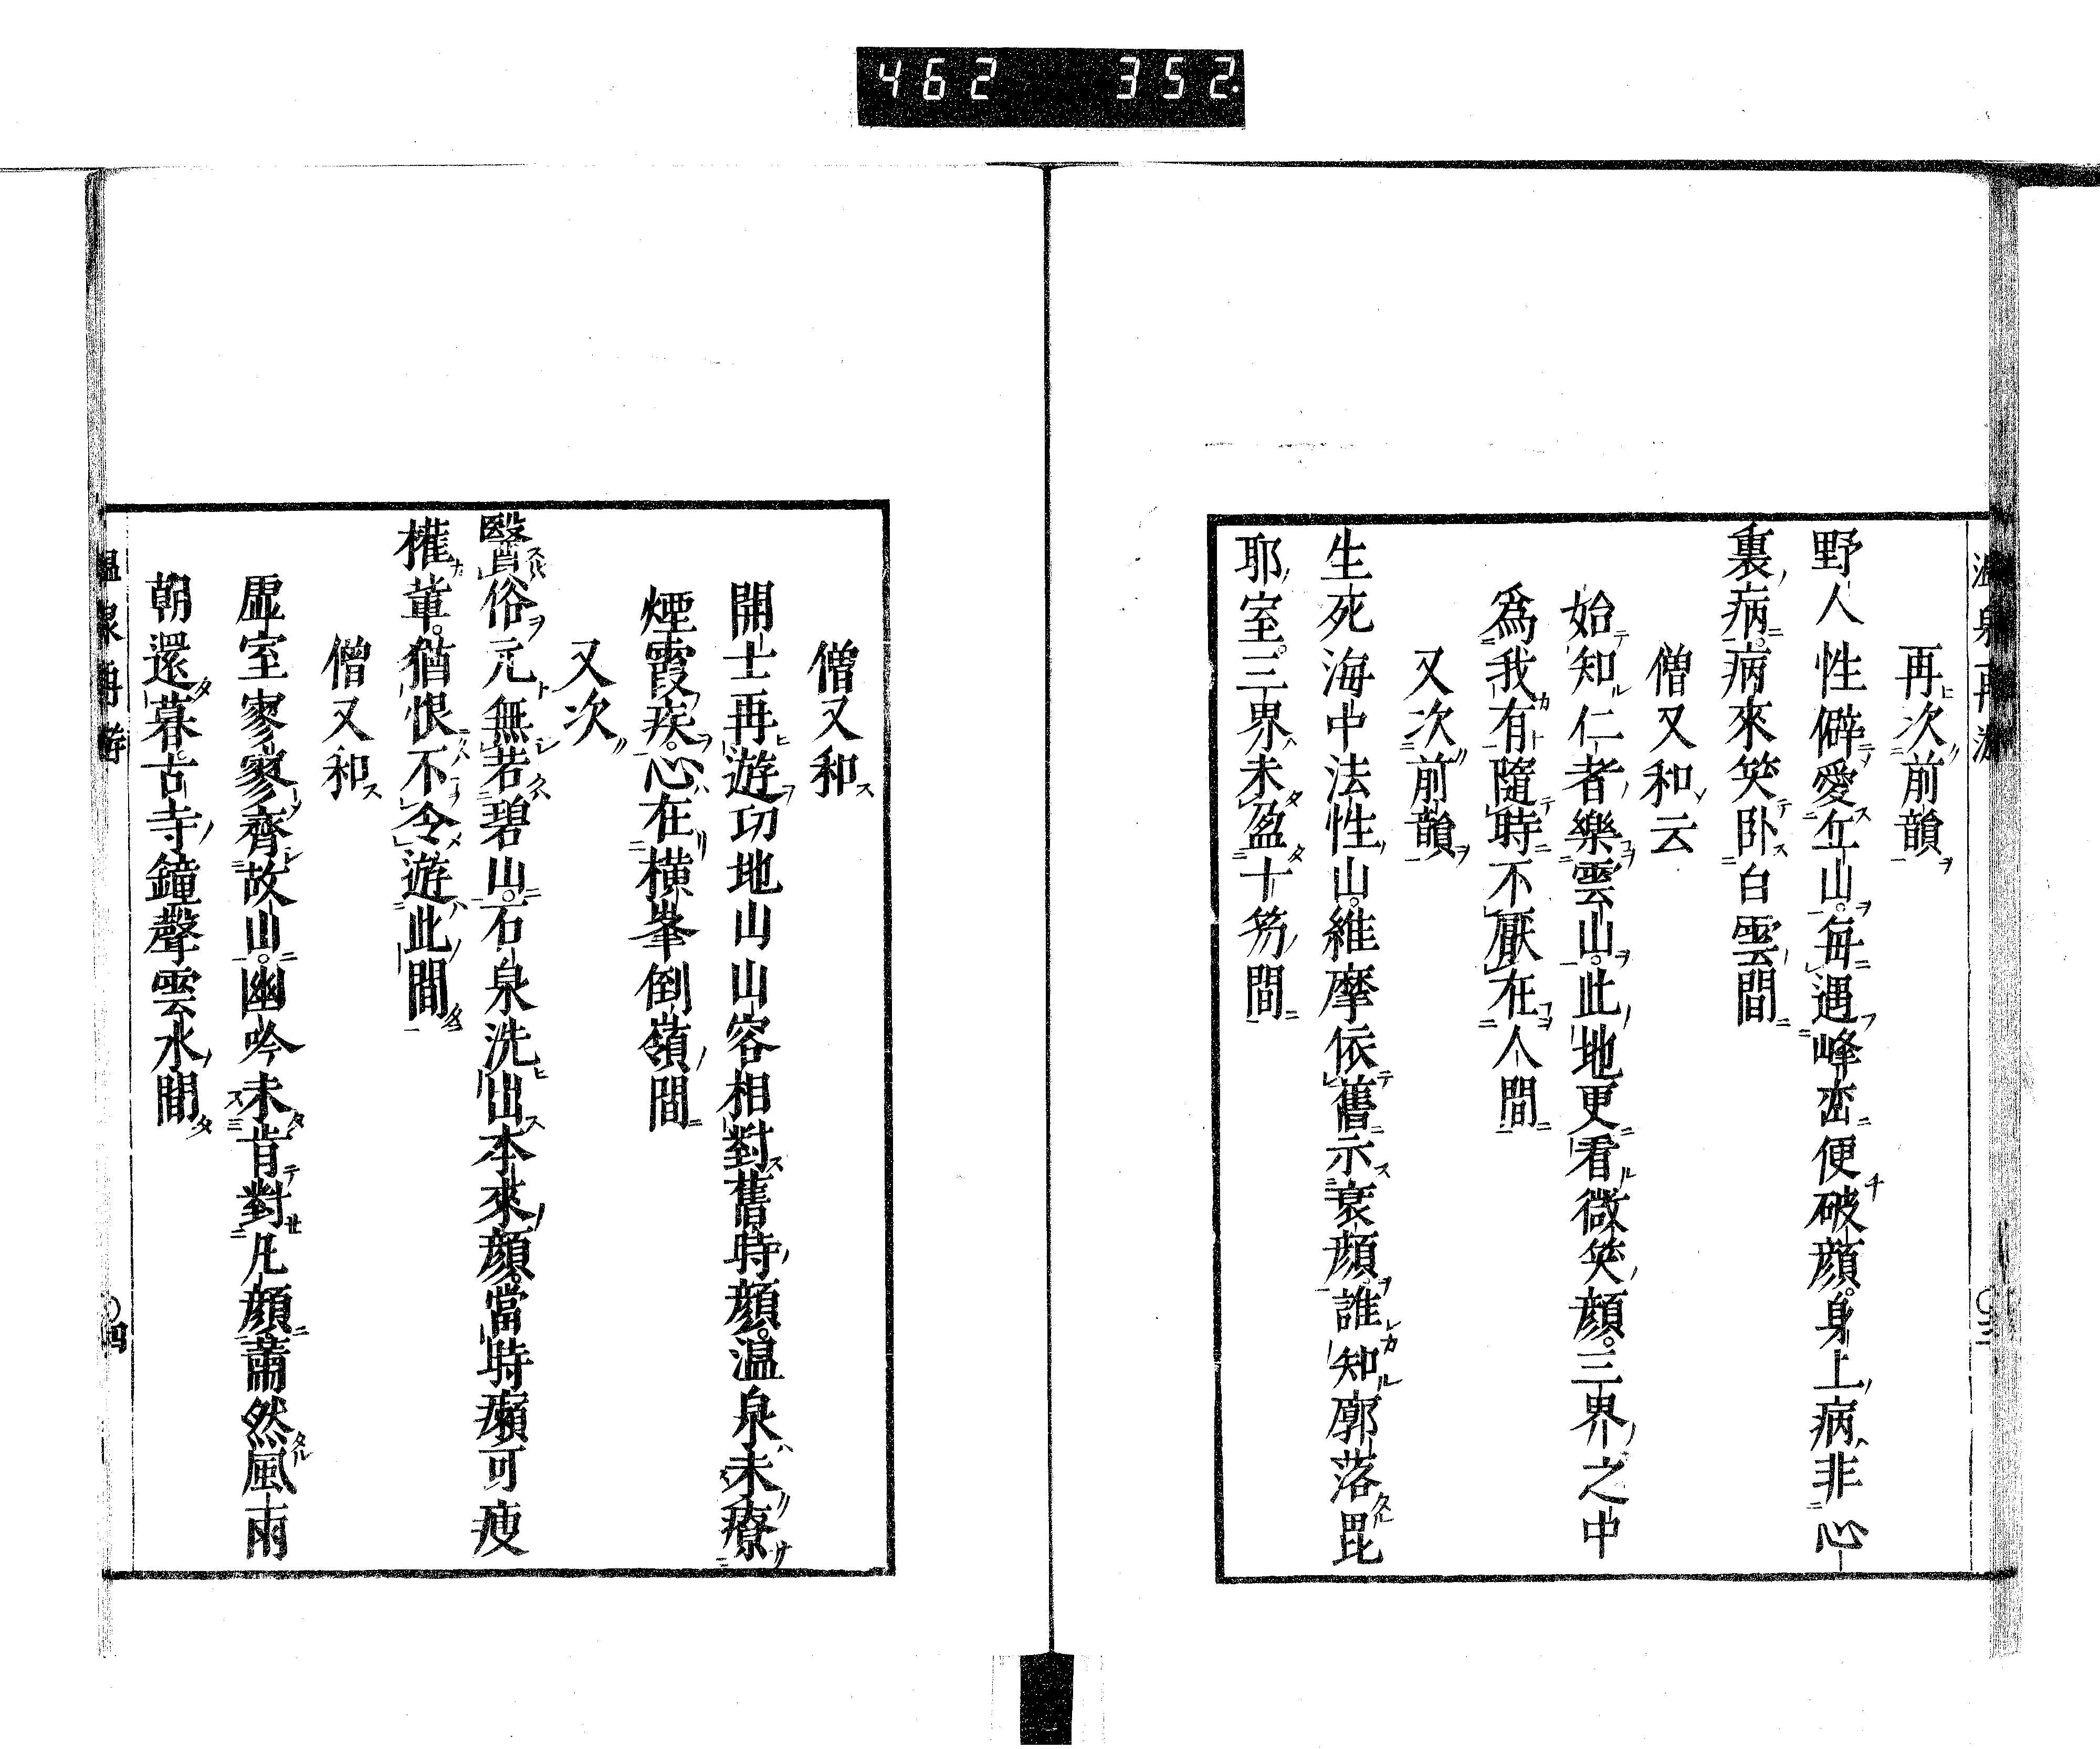 462 352
再次前韻
野人性僻愛丘山。每遇峰巒便破顏。身上病非心
裏病。病來笑卧白雲間
僧又和云
始知仁者樂雲山。此地更看微笑顏。三界之中
爲我有隨時不厭在人間
又次前韻
生死海中法性山。維摩依舊示衰顏。誰知廓落毘
耶室。三界未盈十笏間
僧又和
開士再遊功地山山容相對舊時顏。温泉未療
煙霞疾。心在橫峯倒嶺間
又次
醫俗元無若碧山。石泉洗出本來顏。當時癩可痩
權輩。猶恨不令遊此間
僧又和
虛室寥寥齊故山。幽吟未肯對凡顏蕭然風雨
朝還暮。古寺鐘聲雲水間
四